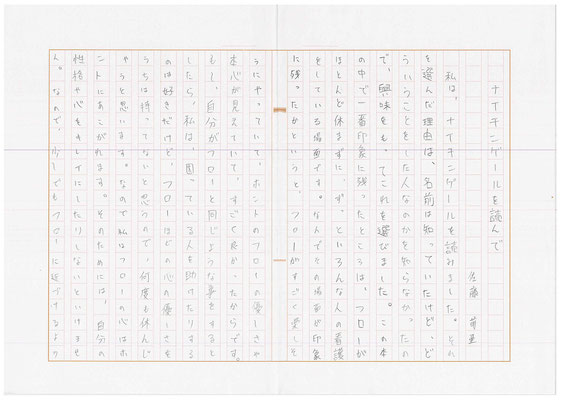 ナイチンゲールを読んで
佐藤
私は、ナイチンゲールを読みました。この本
を選んだ理由は、名前は知っていたけど、ど
ういうことをした人なのかを知らなかったの
で、興味をもってこれを選びました。この本
の中で一番印象に残ったところは、フローが
ほとんど休まずに、ずっといろんな人の看護
をしている場面です。なんでその場面が印象
に残ったかというと、フローがすごく楽しそ
うにやっていて、ホントのフローの優しさや
本心が見えていて、すごく良かったからです。
もし、自分がフローと同じような事をすると
したら、私は、困っている人を助けたりする
のは好きだけど、フローほどの心の優しさを
うちは持ってないと思うので、何度も休んじ
ゃうと思います。なので私はフローの心はホ
ントにあこがれます。そのためには、自分の
性格や心をキレイにしたりしないといけませ
ん。なので、少しでもフローに近づけるよう